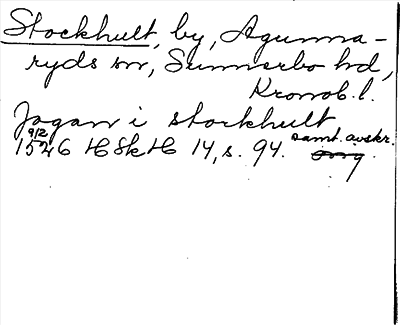 Stockhult, by, Agunna-
ryds sn, Sunnerbo hd,
Kronob. l.
Jogan i stockhult
9/2 samt. avskr.
1546 HSkH 14, s. 94. orig